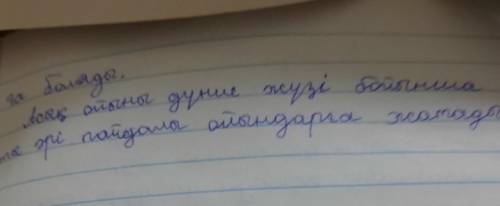 га болады.
Асық ойыны дүние жүзі бойынша
ты әрі пайдалы ойындарға жатады